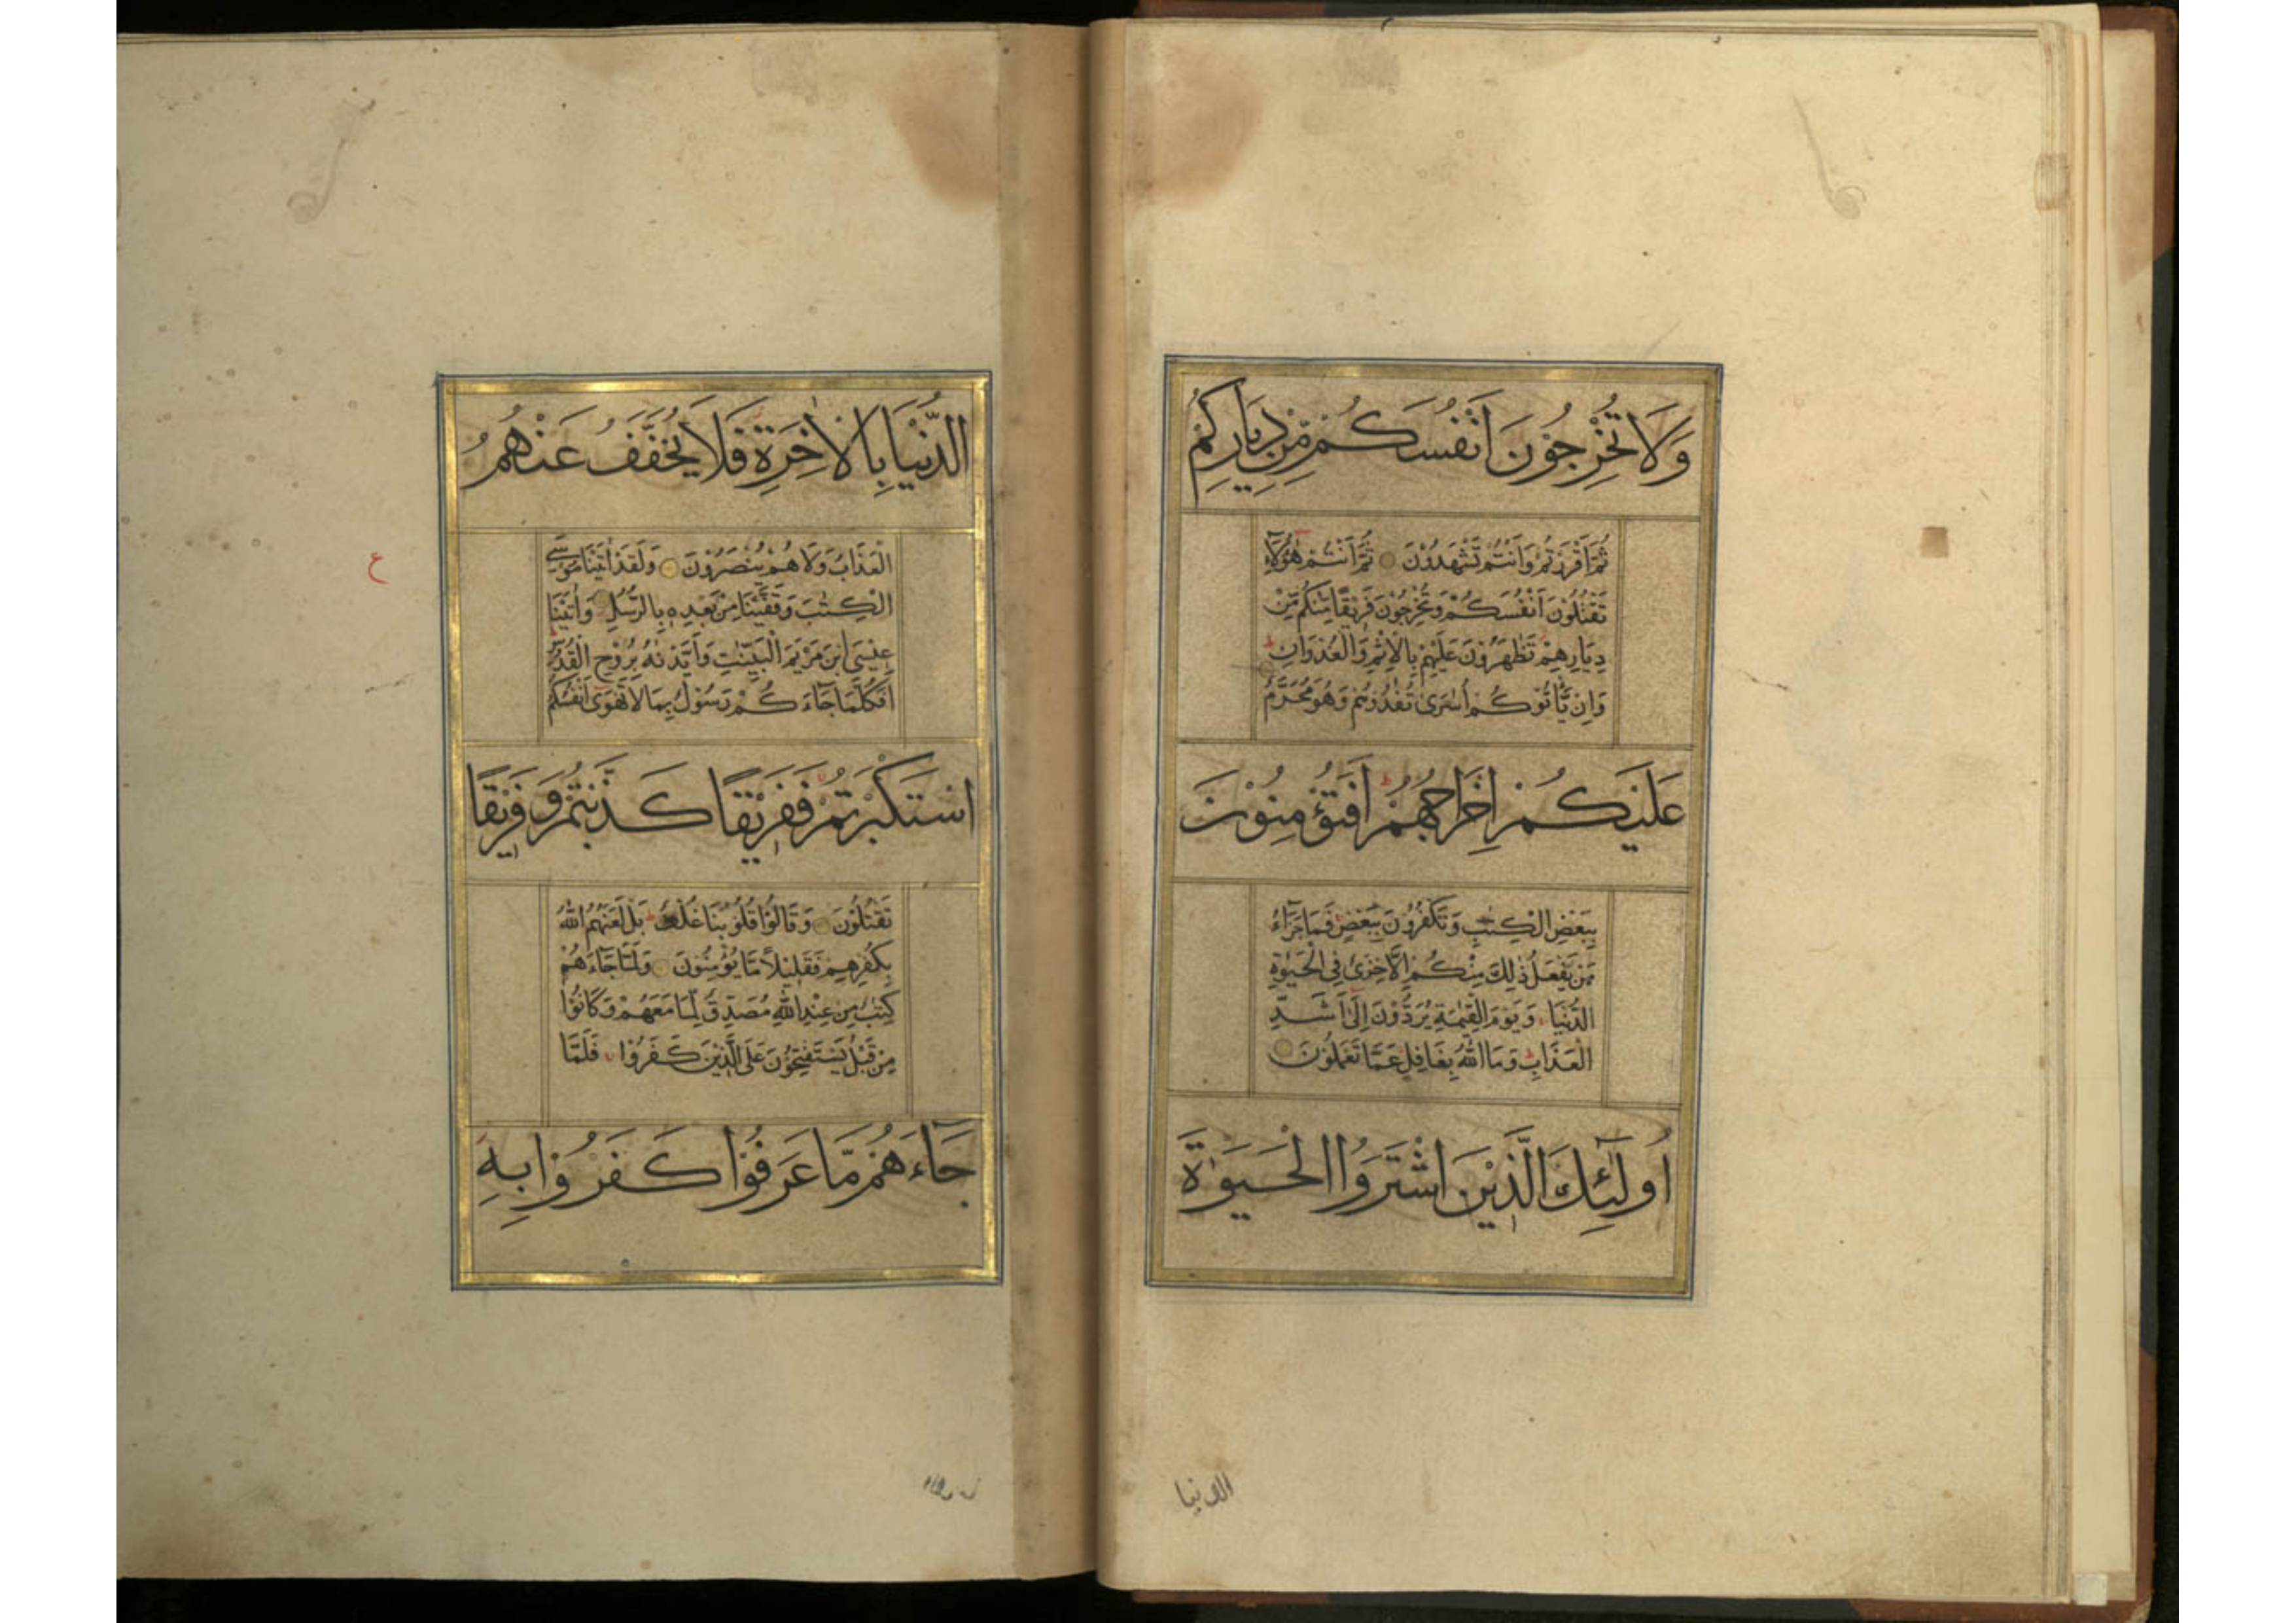 وَلَا تُخْرِجُوْنَ اَنْفُسَكُمْ مِّنْ دِيَارِكُمْ
ثُمَّ اَقْرَرْتُمْ وَاَنْتُمْ تَشْهَدُوْنَ ثُمَّ اَنْتُمْ هٰٓؤُلَآءِ
تَقْتُلُوْنَ اَنْفُسَكُمْ وَتُخْرِجُوْنَ فَرِيْقًا مِّنْكُمْ مِّنْ
دِيَارِهِمْ تَظٰهَرُوْنَ عَلَيْهِمْ بِالْاِثْمِ وَالْعُدْوَانِ ط
وَاِنْ يَّاْتُوْكُمْ اُسٰرٰى تُفٰدُوْهُمْ وَهُوَ مُحَرَّمٌ
عَلَيْكُمْ اِخْرَاجُهُمْ ط اَفَتُؤْمِنُوْنَ
بِبَعْضِ الْكِتٰبِ وَتَكْفُرُوْنَ بِبَعْضٍ فَمَا جَزَآءُ
مَنْ يَّفْعَلُ ذٰلِكَ مِنْكُمْ اِلَّا خِزْىٌ فِى الْحَيٰوةِ
الدُّنْيَا وَيَوْمَ الْقِيٰمَةِ يُرَدُّوْنَ اِلٰٓى اَشَدِّ
الْعَذَابِ وَمَا اللّٰهُ بِغَافِلٍ عَمَّا تَعْمَلُوْنَ
اُولٰٓئِكَ الَّذِيْنَ اشْتَرَوُا الْحَيٰوةَ
الدنيا
الدُّنْيَا بِالْاٰخِرَةِ فَلَا يُخَفَّفُ عَنْهُمُ
الْعَذَابُ وَلَا هُمْ يُنْصَرُوْنَ وَلَقَدْ اٰتَيْنَا مُوْسَى
ع
الْكِتٰبَ وَقَفَّيْنَا مِنْ بَعْدِهٖ بِالرُّسُلِ وَاٰتَيْنَا
عِيْسَى ابْنَ مَرْيَمَ الْبَيِّنٰتِ وَاَيَّدْنٰهُ بِرُوْحِ الْقُدُسِ
اَفَكُلَّمَا جَآءَكُمْ رَسُوْلٌ بِمَا لَا تَهْوٰٓى اَنْفُسُكُمُ
اسْتَكْبَرْتُمْ فَفَرِيْقًا كَذَّبْتُمْ وَفَرِيْقًا
تَقْتُلُوْنَ وَقَالُوْا قُلُوْبُنَا غُلْفٌ ط بَلْ لَعَنَهُمُ اللّٰهُ
بِكُفْرِهِمْ فَقَلِيْلًا مَّا يُؤْمِنُوْنَ وَلَمَّا جَآءَهُمْ
كِتٰبٌ مِنْ عِنْدِ اللّٰهِ مُصَدِّقٌ لِّمَا مَعَهُمْ وَكَانُوْا
مِنْ قَبْلُ يَسْتَفْتِحُوْنَ عَلَى الَّذِيْنَ كَفَرُوْا فَلَمَّا
جَآءَهُمْ مَّا عَرَفُوْا كَفَرُوْا بِهِ